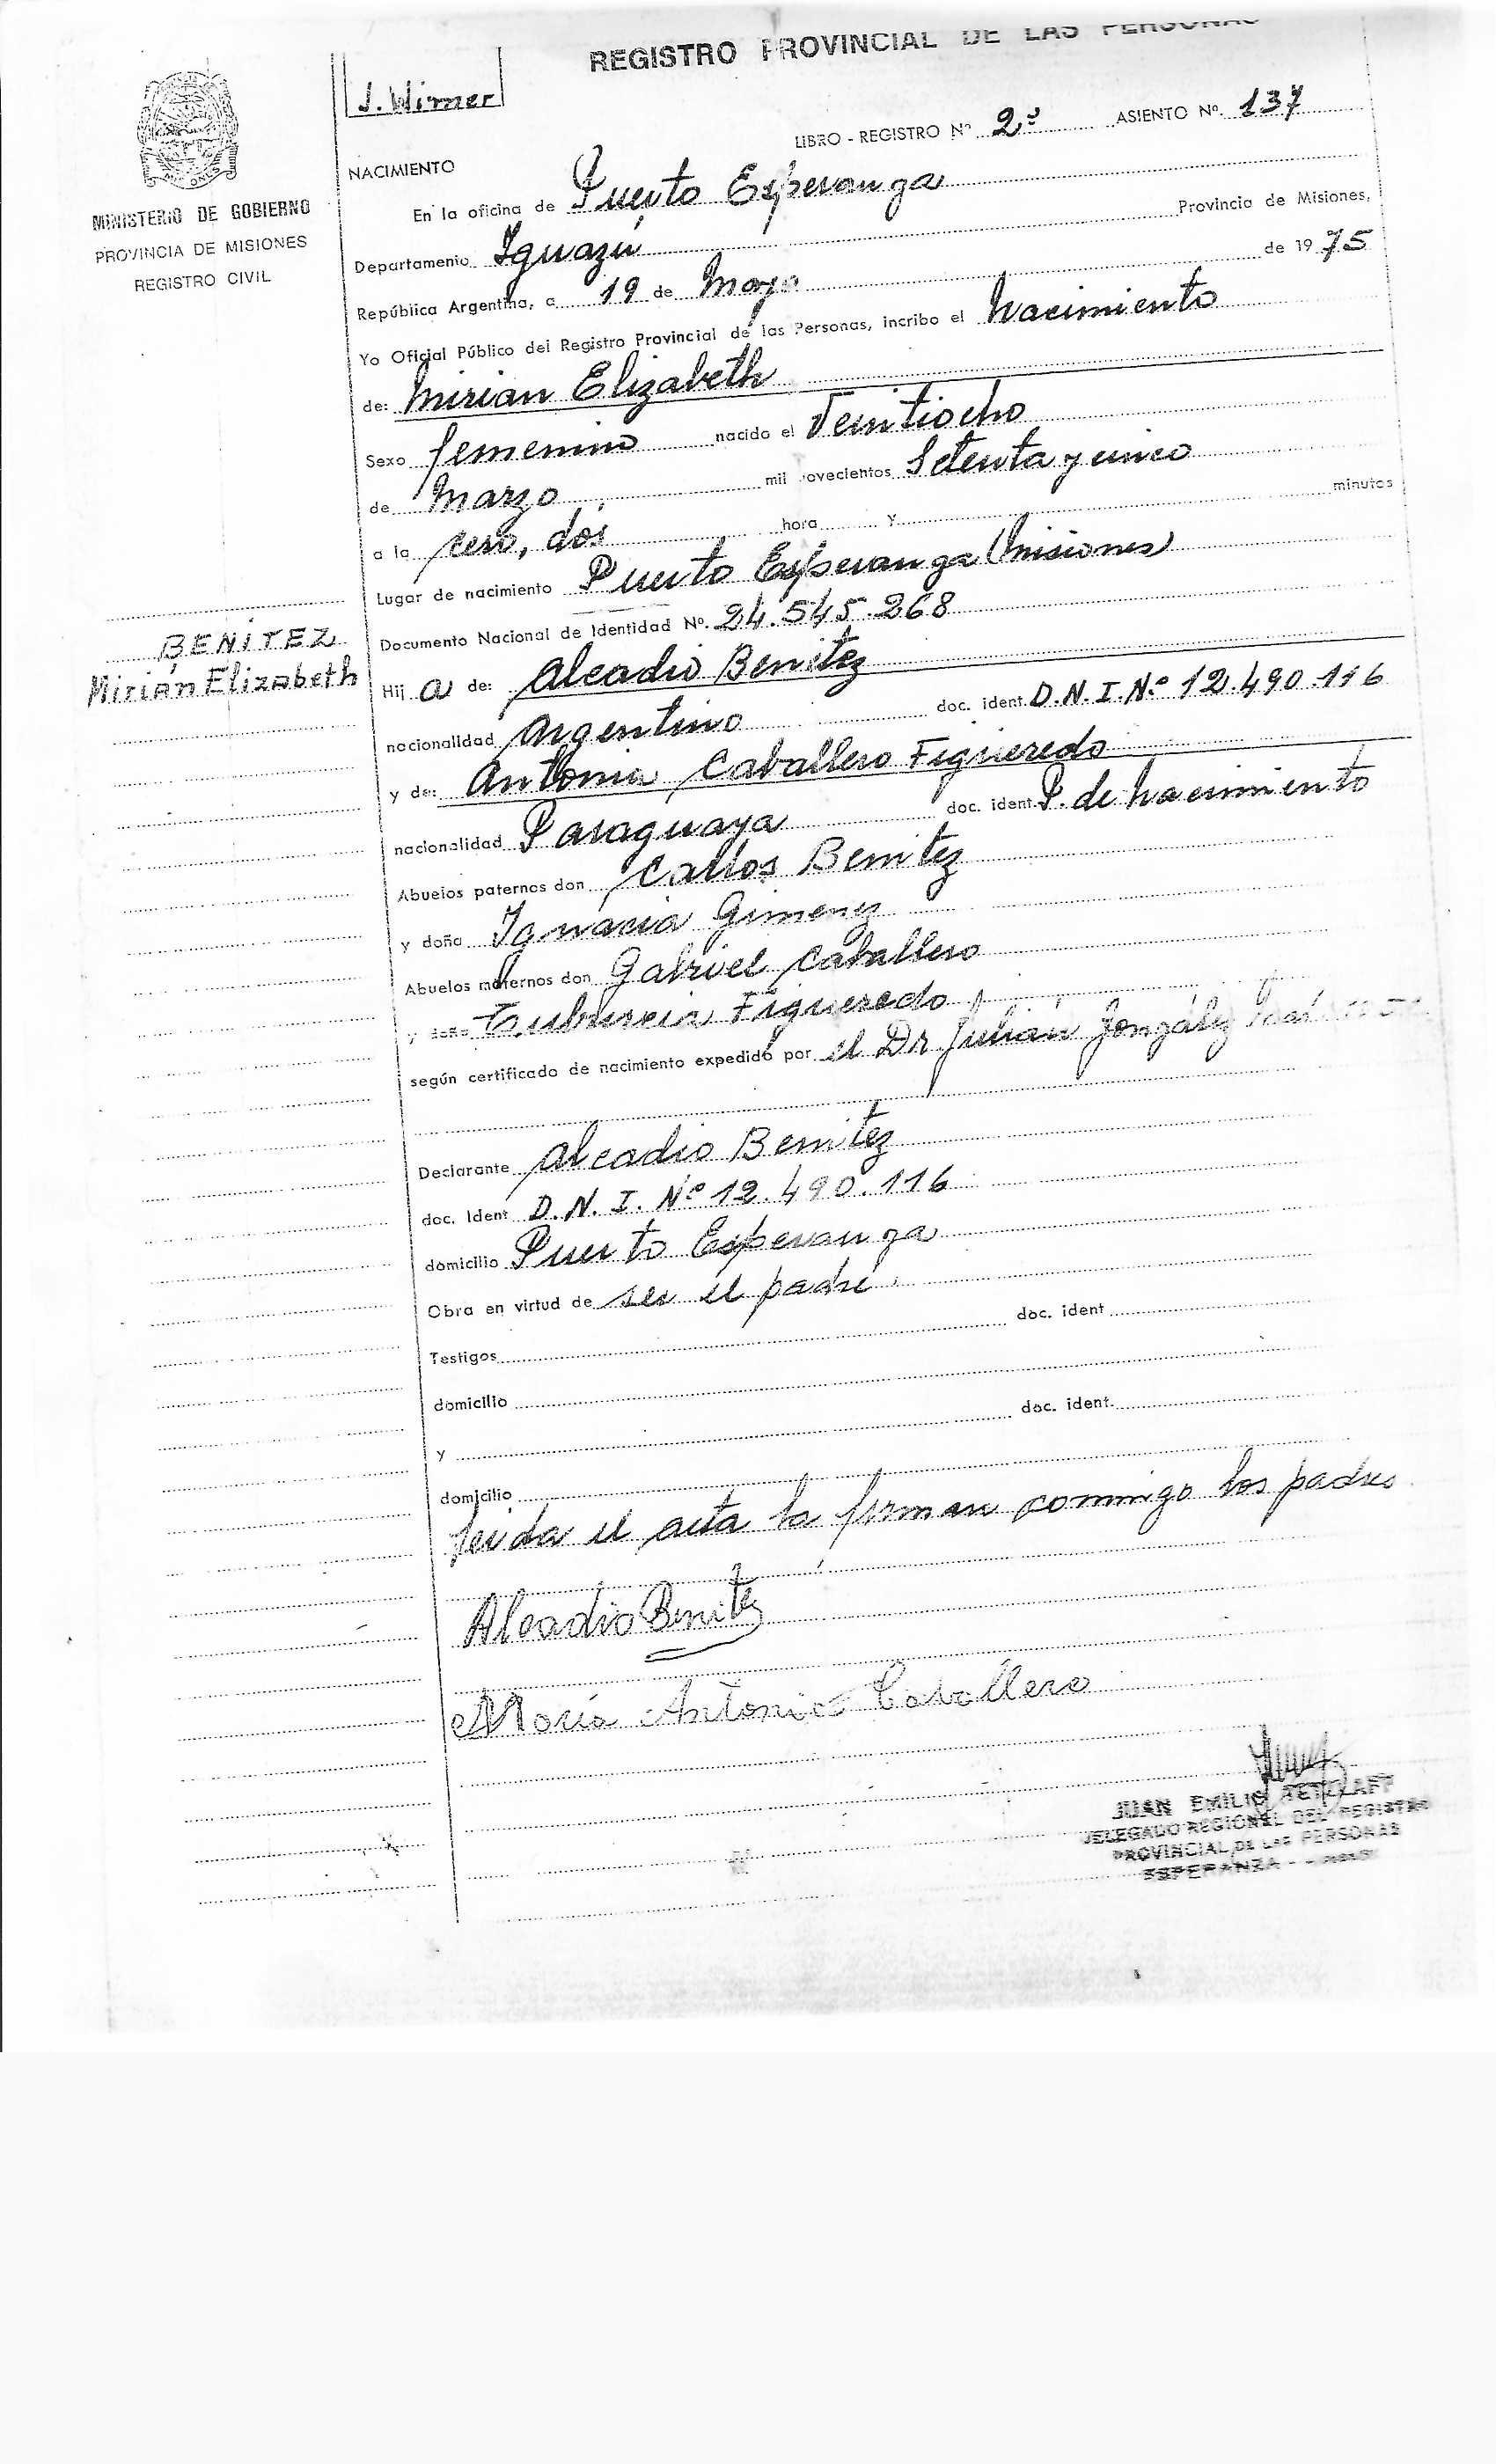 REGISTRO PROVINCIAL DE LAS PERSONAS
J. Wirner
LIBRO - REGISTRO Nº 2º ASIENTO Nº 137
MINISTERIO DE GOBIERNO
PROVINCIA DE MISIONES
REGISTRO CIVIL
NACIMIENTO
En la oficina de Puerto Esperanza
Departamento Iguazú Provincia de Misiones,
República Argentina, a 19 de Mayo de 1975
Yo Oficial Público del Registro Provincial de las Personas, incribo el Nacimiento
de: Mirian Elizabeth
Sexo femenino nacido el Veintiocho
de Marzo mil novecientos Setenta y cinco
a la cero, dos hora y minutos
Lugar de nacimiento Puerto Esperanza (Misiones)
Documento Nacional de Identidad Nº. 24.545.268
BENÍTEZ
Mirián Elizabeth
Hij a de: Alcadio Benitez
nacionalidad Argentino doc. ident. D.N.I.Nº 12.490.116
y de: Antonia Caballero Figueredo
nacionalidad Paraguaya doc. ident. P. de Nacimiento
Abuelos paternos don Carlos Benitez
y doña Ignacia Gimenez
Abuelos maternos don Gabriel Caballero
y doña Figueredo
según certificado de nacimiento expedido por el Dr Julián González
Declarante Alcadio Benitez
doc. Ident D.N.I. Nº 12.490.116
domicilio Puerto Esperanza
Obra en virtud de ser el padre
Testigos doc. ident
domicilio
y doc. ident.
domicilio
Leida el acta la firman conmigo los padres
Alcadio Benitez
María Antonia Caballero
JUAN EMILIO TETZLAFF
DELEGADO REGIONAL DEL REGISTRO
PROVINCIAL DE LAS PERSONAS
ESPERANZA - MISIONES